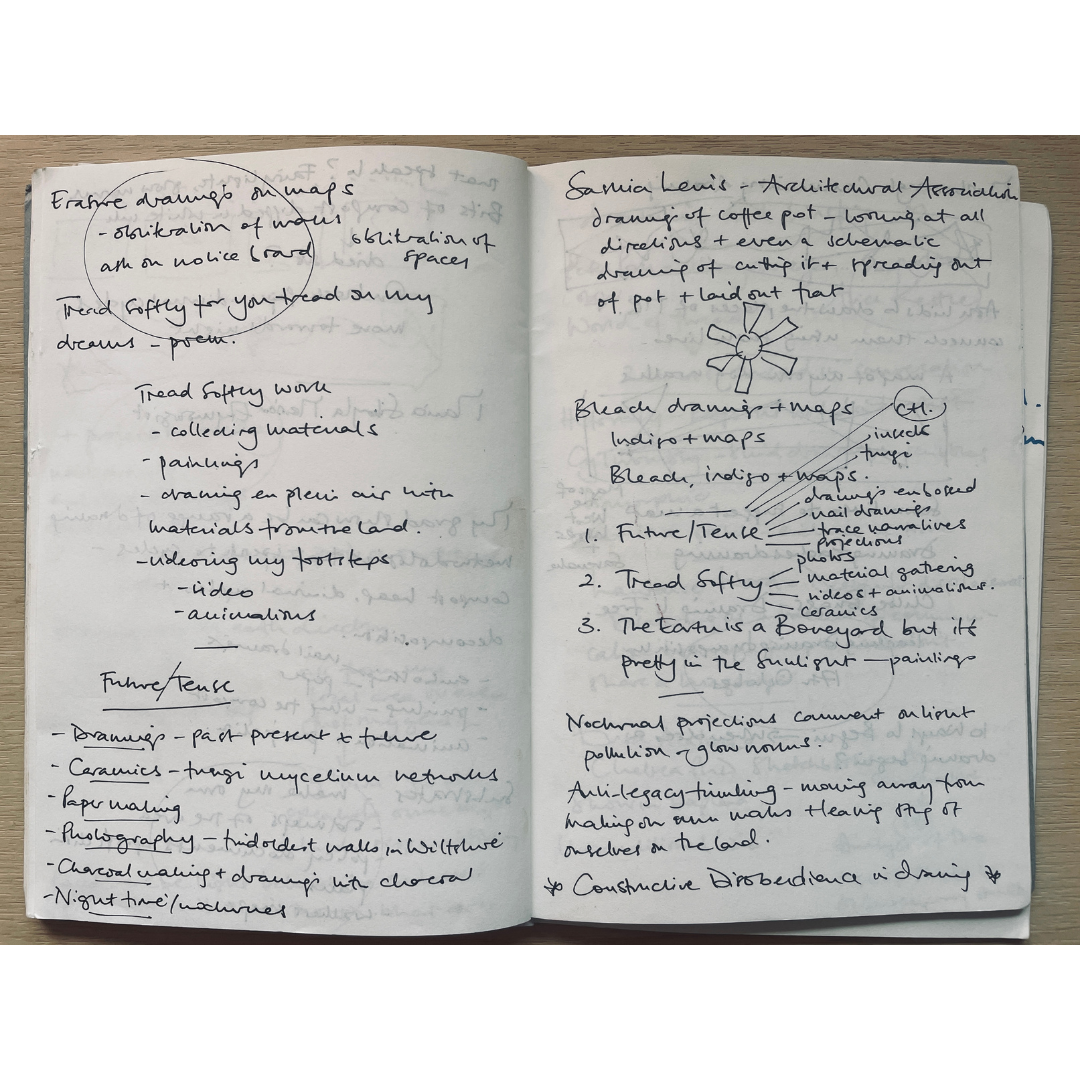 Erasure drawings on maps
- obliteration of walls
obliteration of
spaces
ash on notice board
Tread Softly for you tread on my
dreams - poem.
Tread Softly work
- collecting materials
- paintings
- drawing en plein air with
materials from the land.
- videoing my footsteps
- video
- animations
Future/Tense
- Drawings - past present & future
- Ceramics - fungi mycelium networks
- Paper making
- Photography - find oldest walks in Wiltshire
- Charcoal making + drawings with charcoal
- Night time/nocturnes
Saskia Lewis - Architectural Association
drawing of coffee pot - looking at all
directions + even a schematic
drawing of cutting it + spreading out
of pot + laid out flat
Bleach drawings + maps
Indigo + maps
Bleach, indigo + maps.
1. Future/Tense
insects
fungi
drawings embossed
nail drawings
trace narratives
projections
2. Tread Softly
photos
material gathering
videos + animations.
ceramics
3. The Earth is a Boneyard but it's
pretty in the Sunlight - paintings
Nocturnal projections comment on light
pollution - glow worms.
Anti-legacy thinking - moving away from
making our own marks + leaving of
ourselves on the land.
* Constructive Disobedience in drawing *